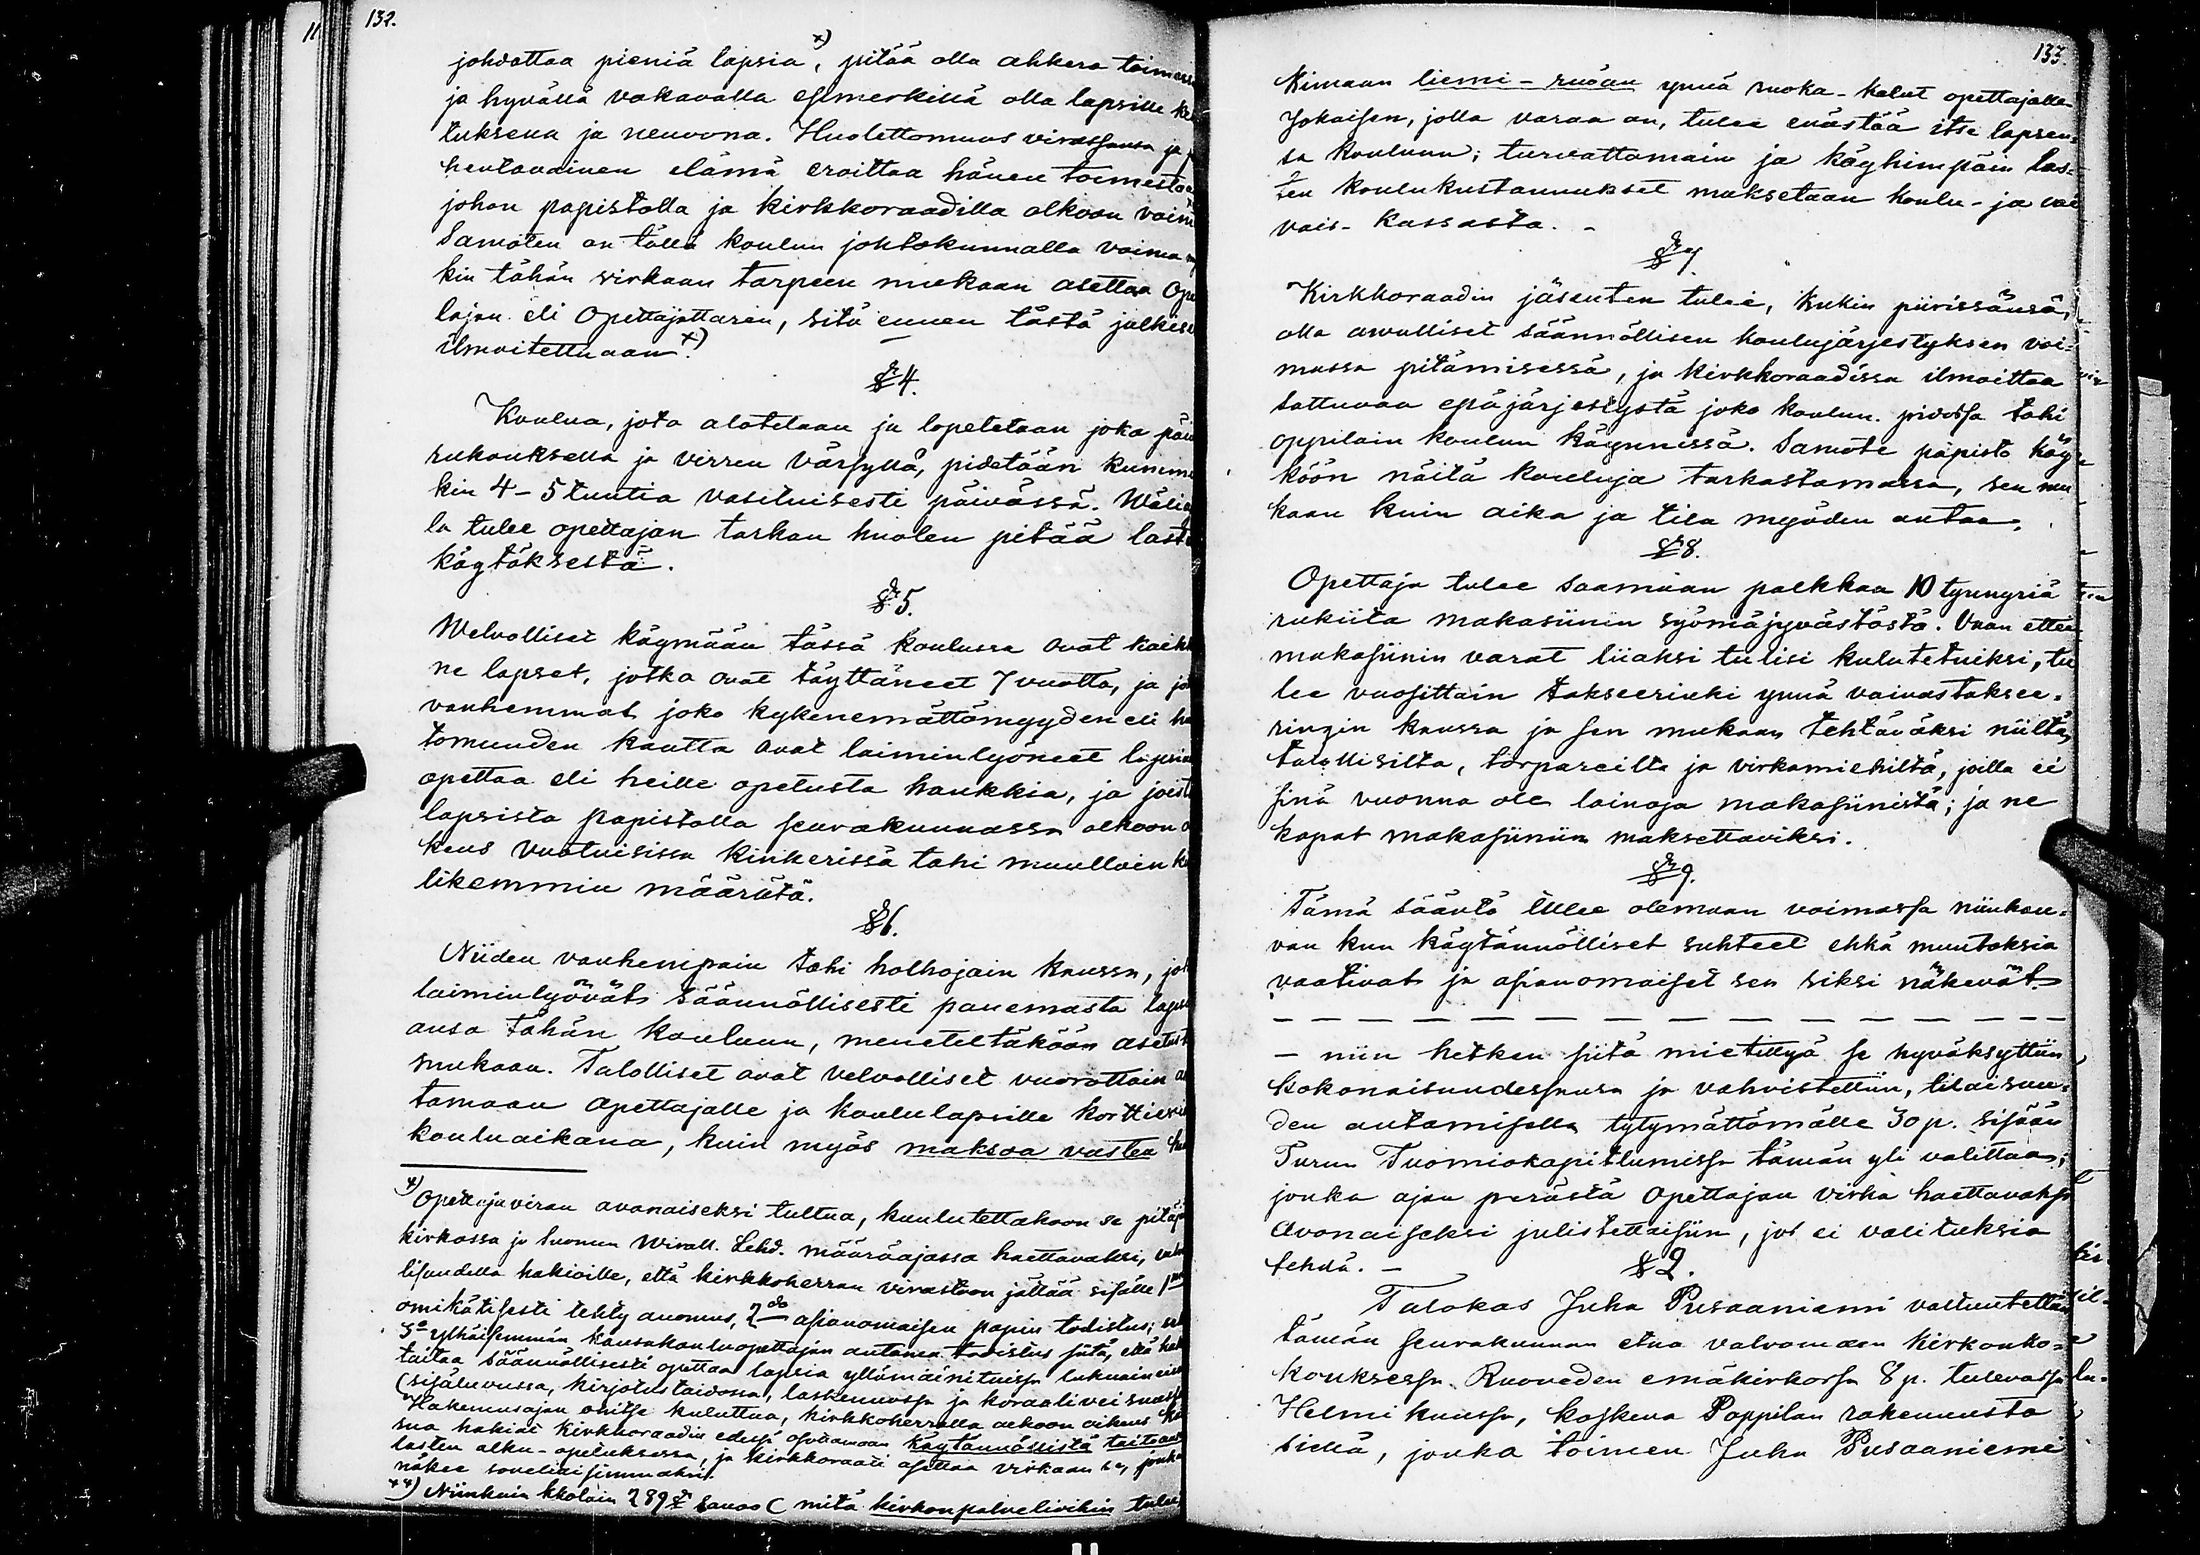 11
132.
johdattaa pieniä lapsia x), pitää olla ahkera toimessa
ja hyvällä vakavalla esimerkillä olla lapsille ke
tuksena ja neuvona. Huolettomuus virassansa ja
hentavainen elämä eroittaa hänen toimesta
johon papistolla ja kirkkoraadilla olkoon voim
Samoten on tällä koulun johtokunnalla voima
kin tähän virkaan tarpeen mukaan asettaa Ope
lajan eli Opettajattaren, sitä ennen tästä julkise
ilmoitettuaan x)
§ 4.
Koulua, jota alotetaan ja lopetetaan joka päi
rukouksella ja virren värsyllä, pidetään kumm
kin 4-5 tuntia vasituisesti päivässä. Wälia
la tulee opettajan tarkan huolen pitää last
käytöksestä.
§ 5.
Welvolliset käymään tässä koulussa ovat kaikk
ne lapset, jotka ovat täyttäneet 7 vuotta, ja jo
vanhemmat joko kykenemättömyyden eli hu
tomuuden kautta ovat laiminlyöneet lapsia
opettaa eli heille opetusta hankkia, ja joist
lapsista papistolla seurakunnassa olkoon o
keus vuotuisissa kinkerissä tahi muulloin k
likemmin määrätä.
§ 6.
Niiden vanhempain tahi holhojain kanssa, jot
laiminlyövät säännöllisesti panemasta laps
ansa tähän kouluun, meneteltäköön asetust
mukaan. Talolliset ovat velvolliset vuorottain a
tamaan opettajalle ja koululapsille korttieri
kouluaikana, kuin myös maksaa vasten
x) Opettajaviran avonaiseksi tultua, kuulutettakoon se pitäjä
kirkossa ja Suomen Wirall. Lehd. määräajassa haettavaksi,
lisuudella hakioille, että kirkkoherran virastoon jättää sisälle 1mo
omikätisesti tehty anomus, 2do asianomaisen papin todistus;
3o ylhäisemmän kansakouluopettajan antama todistus siitä, että hak
taitaa säännöllisesti opettaa lapsia yllämainituissa lukuaineissa
(sisäluvussa, kirjotustaidossa, laskennossa ja koraaliveisuussa
Hakemusajan ohitse kuluttua, kirkkoherralla olkoon oikeus
sua hakiat kirkkoraadin edessä osottamaan käytännöllistä taitoan
lasten alku-opetuksessa, ja kirkkoraati asettaa virkaan se, jonka
näkee soveliaisimmaksi.
xx) Niinkuin kklain 289 § sanoo (mitä kirkonpalvelioihin tulee,
133.
kimaan liemi-ruoan ynnä ruoka-kalut opettajalle
Jokaisen, jolla varaa on, tulee evästää itse lapsen-
sa kouluun; turvattomain ja köyhimpäin las-
ten koulukustannukset maksetaan koulu- ja vai
vais-kassasta. -
§ 7
Kirkkoraadin jäsenten tulee, kukin piirissänsä,
olla avulliset säännöllisen koulujärjestyksen voi-
massa pitämisessä, ja kirkkoraadissa ilmoittaa
sattuvaa epäjärjestystä joko koulun pidossa tahi
oppilain koulun käynnissä. Samote papisto käy
köön näitä kouluja tarkastamassa, sen mu
kaan kuin aika ja tila myöden antaa.
§ 8.
Opettaja tulee saamaan palkkaa 10 tynnyriä
rukiita makasiinin syömäjyvästöstä. Vaan ettei
makasiinin varat liiaksi tulisi kulutetuiksi, tu
lee vuosittain takseerinki ynnä vaivastaksee-
ringin kanssa ja sen mukaan tehtäväksi niiltä
talollisilta, torpareilta ja virkamiehiltä, joilla ei
sinä vuonna ole lainoja makasiinistä; ja ne
kapat makasiiniin maksettaviksi.
§ 9.
Tämä sääntö tulee olemaan voimassa niinkau-
van kun käytännölliset suhteet ehkä muutoksia
vaativat ja asianomaiset sen siksi näkevät.
— — — — — — — — — — — — — —
— niin hetken siitä mietittyä se hyväksyttiin
kokonaisuudessansa ja vahvistettiin, tilaisuu-
den antamisella tytymättömälle 30 p. sisään
Turun Tuomiokapitlumissa tämän yli valittaa;
jonka ajan perästä Opettajan virka haettavaksi
avonaiseksi julistettaisiin, jos ei valituksia
tehdä. —
§ 2.
Talokas Juha Pusaaniemi valtuutettiin
tämän seurakunnan etua valvomaan kirkonko-
kouksessa Ruoveden emäkirkossa 8 p. tulevassa
Helmikuussa, koskeva Pappilan rakennusta
siellä, jonka toimen Juha Pusaaniemi